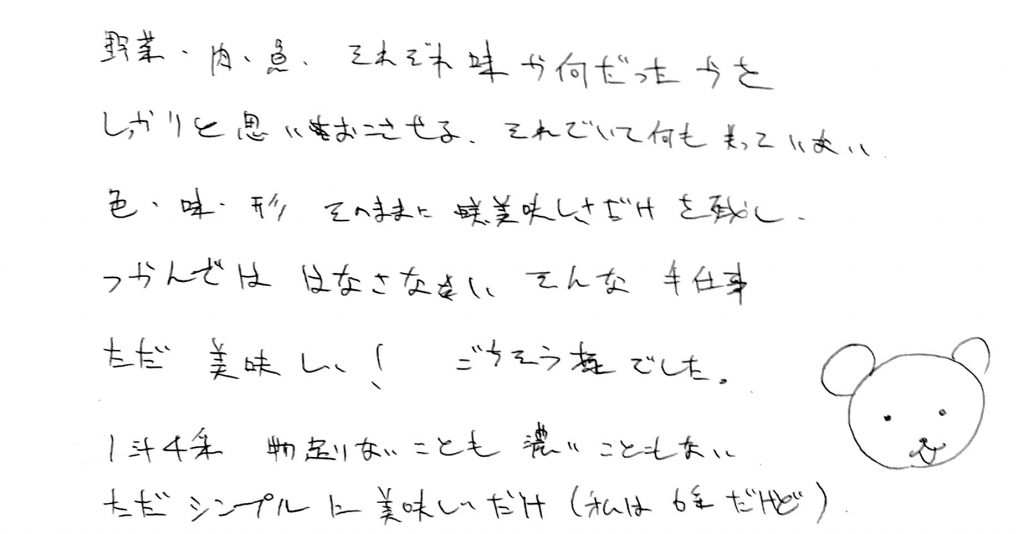 野菜・肉・魚、それぞれ味か何だったかを
しっかりと思いおこさせる、それでいて何も失っていない
色・味・形 そのままに 美味しさだけを残し、
つかんでは はなさない そんな 手仕事
ただ 美味しい! ごちそう様でした。
1汁4菜 物足りないことも 濃いこともない
ただシンプルに美味しいだけ(私は 6菜だけど)